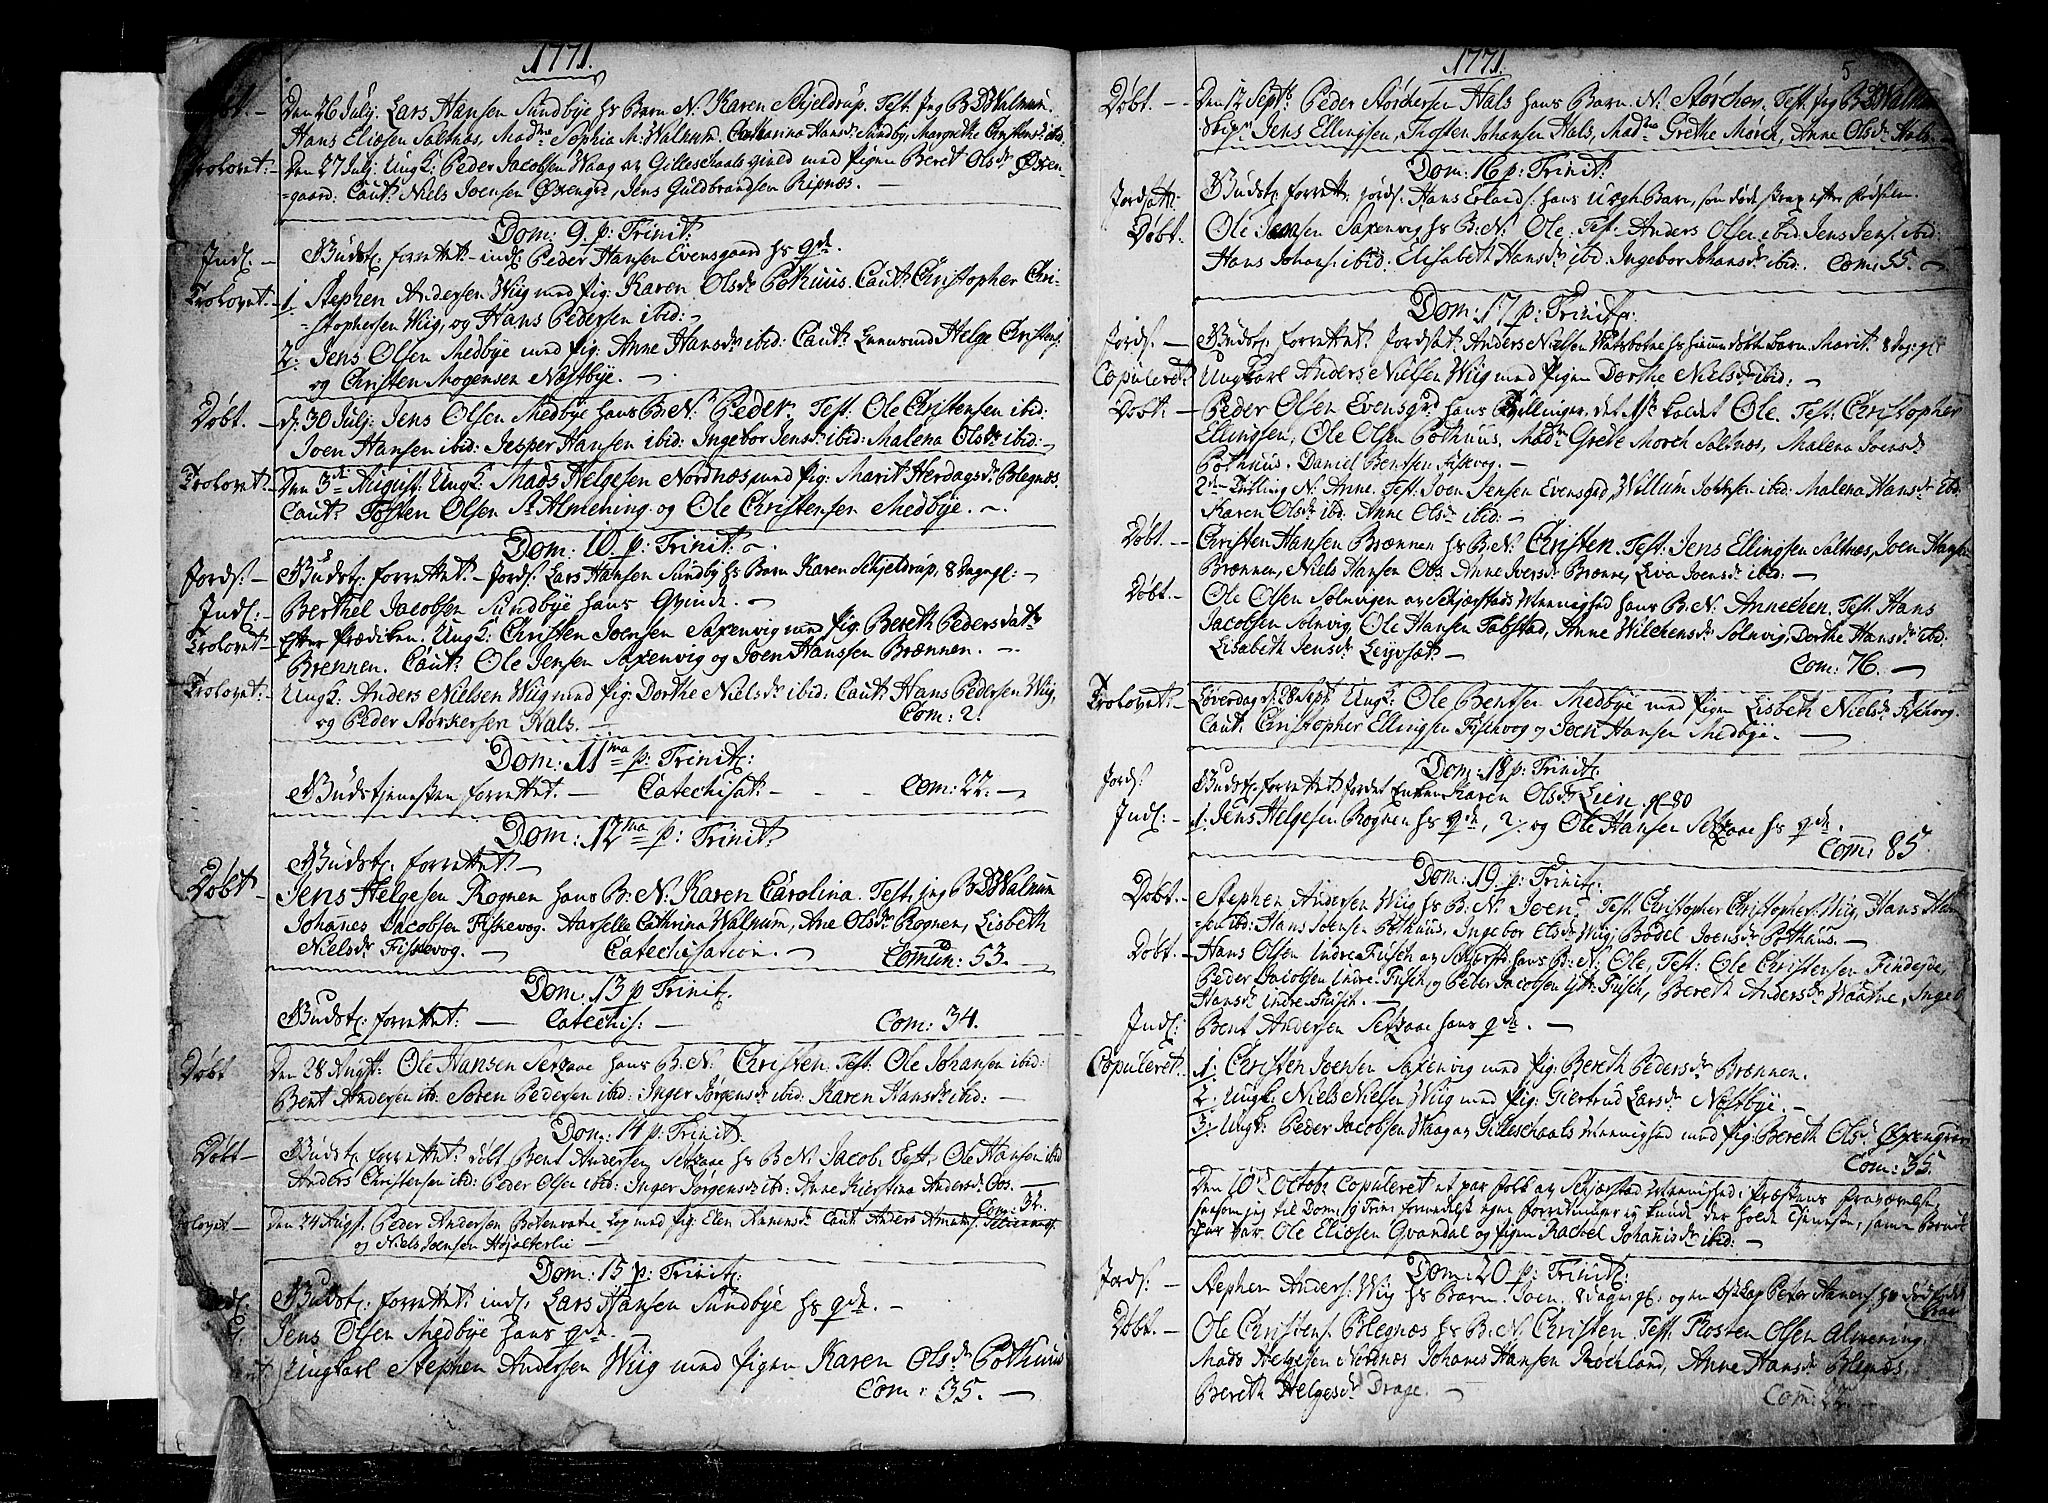 1771.
Døbt. — Den 26 Julj. Lars Hansen Sundbye hs Barn N. Karen Schjeldrup. Test. Jeg B D Walnum.
Hans Eliæsen Saltnæs, Madme Sophia M: Walnum, Catharina Hansdr Sundby, Margrethe Christensdr ibid:
Trolovet. — Den 27 Julj: Ungk: Peder Jacobsen Waag av Gilleschaals gield med Pigen Bereth Olsdr Øxen-
=gaard: Cautr Niels Joensen Øxengrd, Jens Guldbrandsen Ripnæs. —
Dom: 9 p: Trinit.
Indl. — Gudstj. forrettet — indl. Peder Hansen Evensgaard hs qde.
Trolovet. — 1. Stephen Andersen Wiig med Pig: Karen Olsdr Pothuus. Cautr Christopher Chri-
=stophersen Wiig, og Hans Pedersen ibid: —
2. Jens Olsen Medbye med Pig: Anne Hansdr ibid: Cautr Lennsmd Helge Christens:
og Christen Mogensen Nøstbye. —
Døbt. — d. 30 Julj. Jens Olsen Medbye hans B: N: Peder. Test: Ole Christensen ibid:
Joen Hansen ibid: Jesper Hansen ibid: Ingebor Jensdr ibid: Malena Olsdr ibid: —
Trolovet. — Den 3die August: Ungk: Mads Helgesen Nordnæs med Pig: Marit Herdagsdr Blegnæs.
Cautr Tosten Olsen Almening og Ole Christensen Medbye. —
Dom: 10. p: Trinit:
Jords. — Gudstj. forrettet — Jords. Lars Hansen Sundby hs Barn Karen Schjeldrup, 8 Dag gl: —
Indl: — Berthel Jacobsen Sundbye hans Qvinde. —
Trolovet — efter Prædiken. Ungk: Christen Joensen Saxenvig med Pig. Bereth Pedersdatr
Brennen. Cautr Ole Jensen Saxenvig og Joen Hanssen Brænnen. —
Trolovet. — Ungk: Anders Nielsen Wiig med Pig: Dorthe Nielsdr ibid: Cautr Hans Pedersen Wiig,
og Peder Størkersen Hals. — Com: 2.
Dom: 11ma p: Trinit:
Gudstjenesten forrettet. — Catechisatr — — — Com: 22. —
Dom: 12ma p: Trinit:
Gudstj. forrettet —
Døbt — Jens Helgesen Rognen hans B: N. Karen Carolina. Test: jeg B D Walnum
Johanes Jacobsen Fiskevog. Cathrina Walnum, Ane Olsdr Rognen, Lisbeth
Nielsdr Fiskevog. — Catechisation. — Comun: 53. —
Dom: 13 p Trinit.
Gudstj. forrettet: — Catechis: — Com: 34.
Døbt — Den 28 Augst: Ole Hansen Setzaae hans B: N: Christen: Test: Ole Johansen ibid:
Bent Andersen ib: Søren Pedersen ibid: Inger Jørgensdr ibid: Karen Hansdr ibid: —
Dom: 14 p: Trinit.
Døbt — Gudstj. forrettet døbt Bent Andersen Setzaae hs B: N: Jacob. Test: Ole Hansen ibid
Anders Christensen ibid: Peder Olsen ibid: Inger Jørgensdr ibid: Anne Kierstina Andersdr Oos. —
Com: 32.
Trolovet — Den 24 Augs. Peder Andersen Botenvatne Lop med Pig: Elen Cautr Anders
og Niels Joensen Høyalterlie —
Dom: 15 p: Trinit:
Indl. Gudstj: forrettet: indl: Lars Hansen Sundbye hs qde. —
Jens Olsen Medbye hans qde.
Ungkarl Stephen Andersen Wiig med Pigen Karen Olsdr Pothuus
Com: 35. —
1771.
5
Døbt. — Den 12 Septr Peder Størkersen Hals hans Barn N: Størcher. Test. Jeg B D Walnum
Skipr Jens Ellingsen, Tosten Johansen Hals, Madme Grethe Mørch, Anne Olsdr Hals.
Dom: 16 p: Trinit:
Jordsatt. Gudstj: forrettet, jords: Hans Erlands: hans uægh Barn, som døde strax efter Fødselen.
Døbt. Ole Jensen Saxenvig hs B: N: Ole. Test: Anders Olsen ibid. Jens Jens: ibid:
Hans Johans: ibid. Elisabeth Hansdr ibid. Ingebor Johansdr ibid. Com: 55. —
Dom: 17 p: Trinit:
Jords. — Gudstj. forrettet. Jordsatt Anders Nielsen hs hiemmedøbte Barn Marit. 8 Dag: gl
Copuleret. Ungkarl Anders Nielsen Wiig med Pigen Dorthe Nielsdr ibid: —
Døbt. — Peder Olsen Evensgrd hans Tvillinger, det 1ste kaldet Ole. Test: Christopher
Ellingsen, Ole Olsen Pothuus, Madme Grete Mørch Saltnæs, Malena Joensdr
Pothuus. Daniel Bentsen Fiskvog. —
2den Tvilling N: Anne. Test: Joen Jensen Evensgrd, Willum ibid: Malena Hansdr ibid:
Karen Olsdr ibid: Anne Olsdr ibid: —
Døbt. — Christen Hansen Brænnen hs B: N: Christen. Test: Jens Ellingsen Saltnæs, Joen Hansen
Brønnen, Niels Hansen Oos. Anne Iversdr Brønne, Liva Joensdr ibid: —
Døbt. — Ole Olsen Solvigen av Schjærstads Mennighed hans B: N: Annechen. Test: Hans
Jacobsen Solvig, Ole Hansen Tabstad, Anne Wilchensdr Solvig, Dorthe Hansdr ibid:
Lisabeth Jensdr — Com: 76. —
Trolovet: — Løverdag d: 28 Septr Ungk: Ole Bentsen Medbye med Pigen Lisbeth Nielsdr Fischvog.
Cautr Christopher Ellingsen Fischvog og Joen Hansen Medbye. —
Dom: 18 p: Trinit:
Jords. Gudstj. forrettet. Jordet Enken Karen Olsdr Lien gl 80
Indl: — 1. Jens Helgesen Rognen hs qde, 2. og Ole Hansen Setzaae hs qde.
Com: 85.
Dom: 19. p: Trinit:
Døbt. — Stephen Andersen Wiig hs B: N: Joen. Test: Christopher Christophers: Wiig, Hans Han-
=sen ibid: Hans Joensen Pothuus, Ingebor Olsdr Wiig, Bodel Joensdr Pothuus. —
Døbt. — Hans Olsen Indre Fiisch av Schjerstd. hans B: N: Ole, Test: Ole Christensen
Peder Jacobsen Indre Fiisch, og Peder Jacobsen Yttr: Fiisch, Bereth Andersdr Ingeb
Hansdr indre Fiisch. —
Indl: Bent Andersen Setzaae hans qde. —
Copuleret. 1: Christen Joensen Saxenvig med Pig: Bereth Pedersdr Brænnen.
2. Ungk: Niels Nielsen Wiig med Pig: Giertrud Larsdr Nøstbye. —
3. Ungk: Peder Jacobsen Waag av Gilleschaals Mennighed med Pig: Bereth Olsdr Øxengrd
Com: 35.
Den 10de Octobr copuleret et par Folk av Schjerstad Mennighed i Præstens fraværelse,
saasom jeg til Dom: 19 Trini formedelst egne Forretninger ej kunde der holde Tjeneste, samme Brude
Par var Ole Eliæsen Qvandal og Pigen Rachel Johannisdr ibid: —
Dom: 20 p: Trinit:
Jords: — Stephen Anders: Wiig hs Barn Joen. 8 Dage gl. og en Peter hs dødfødt
Barn
Døbt. — Ole Christens: Blegnæs hs B: N: Christen. Test: Tosten Olsen Almening,
Mads Helgesen Nordnæs Johanes Hansen Rochland, Anne Hansdr Blegnæs,
Bereth Helgesdr Drage. — Com: 22. —